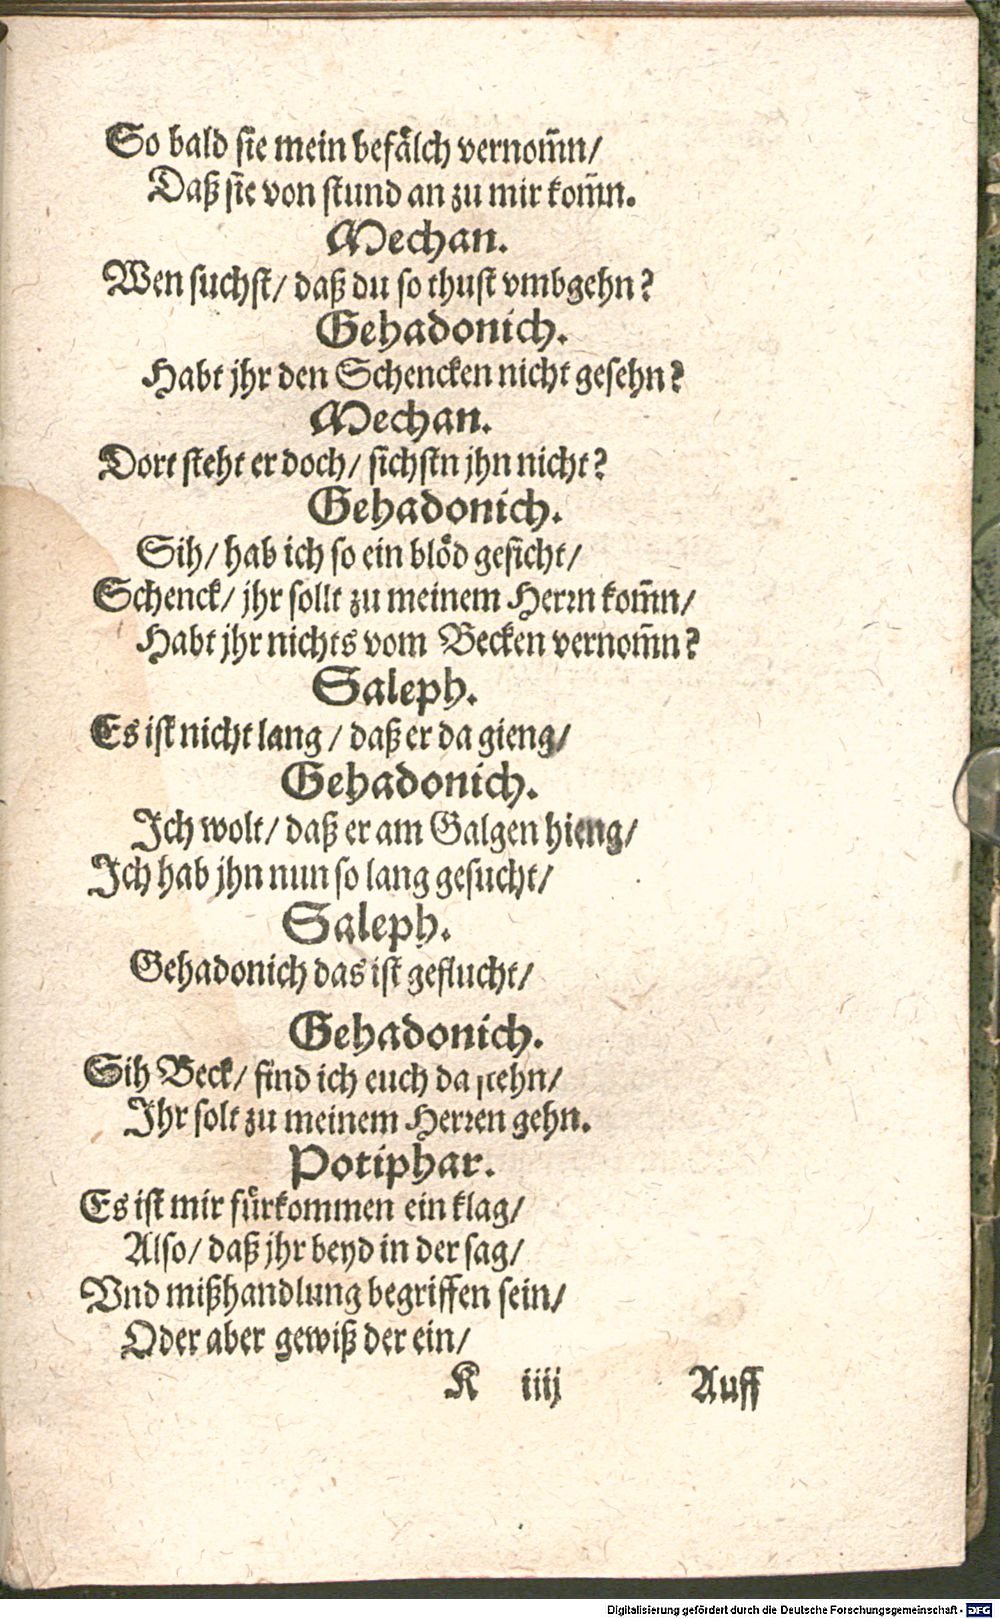 So bald sie mein befälch vernom̄n/
Daß sie von stund an zu mir kom̄n.
Mechan.
Wen suchst/ daß du so thust vmbgehn?
Gehadonich.
Habt jhr den Schencken nicht gesehn?
Mechan.
Dort steht er doch/ sichstn jhn nicht?
Gehadonich.
Sih/ hab ich so ein blöd gesicht/
Schenck/ jhr sollt zu meinem Herrn kom̄n/
Habt jhr nichts vom Becken vernom̄n?
Saleph.
Es ist nicht lang/ daß er da gieng/
Gehadonich.
Ich wolt/ daß er am Galgen hieng/
Ich hab jhn nun so lang gesucht/
Saleph.
Gehadonich das ist geflucht/
Gehadonich.
Sih Beck/ find ich euch da stehn/
Ihr solt zu meinem Herren gehn.
Potiphar.
Es ist mir fürkommen ein klag/
Also/ daß jhr beyd in der sag/
Vnd mißhandlung begriffen sein/
Oder aber gewiß der ein/
K iiij Auff
Digitalisierung gefördert durch die Deutsche Forschungsgemeinschaft - DFG